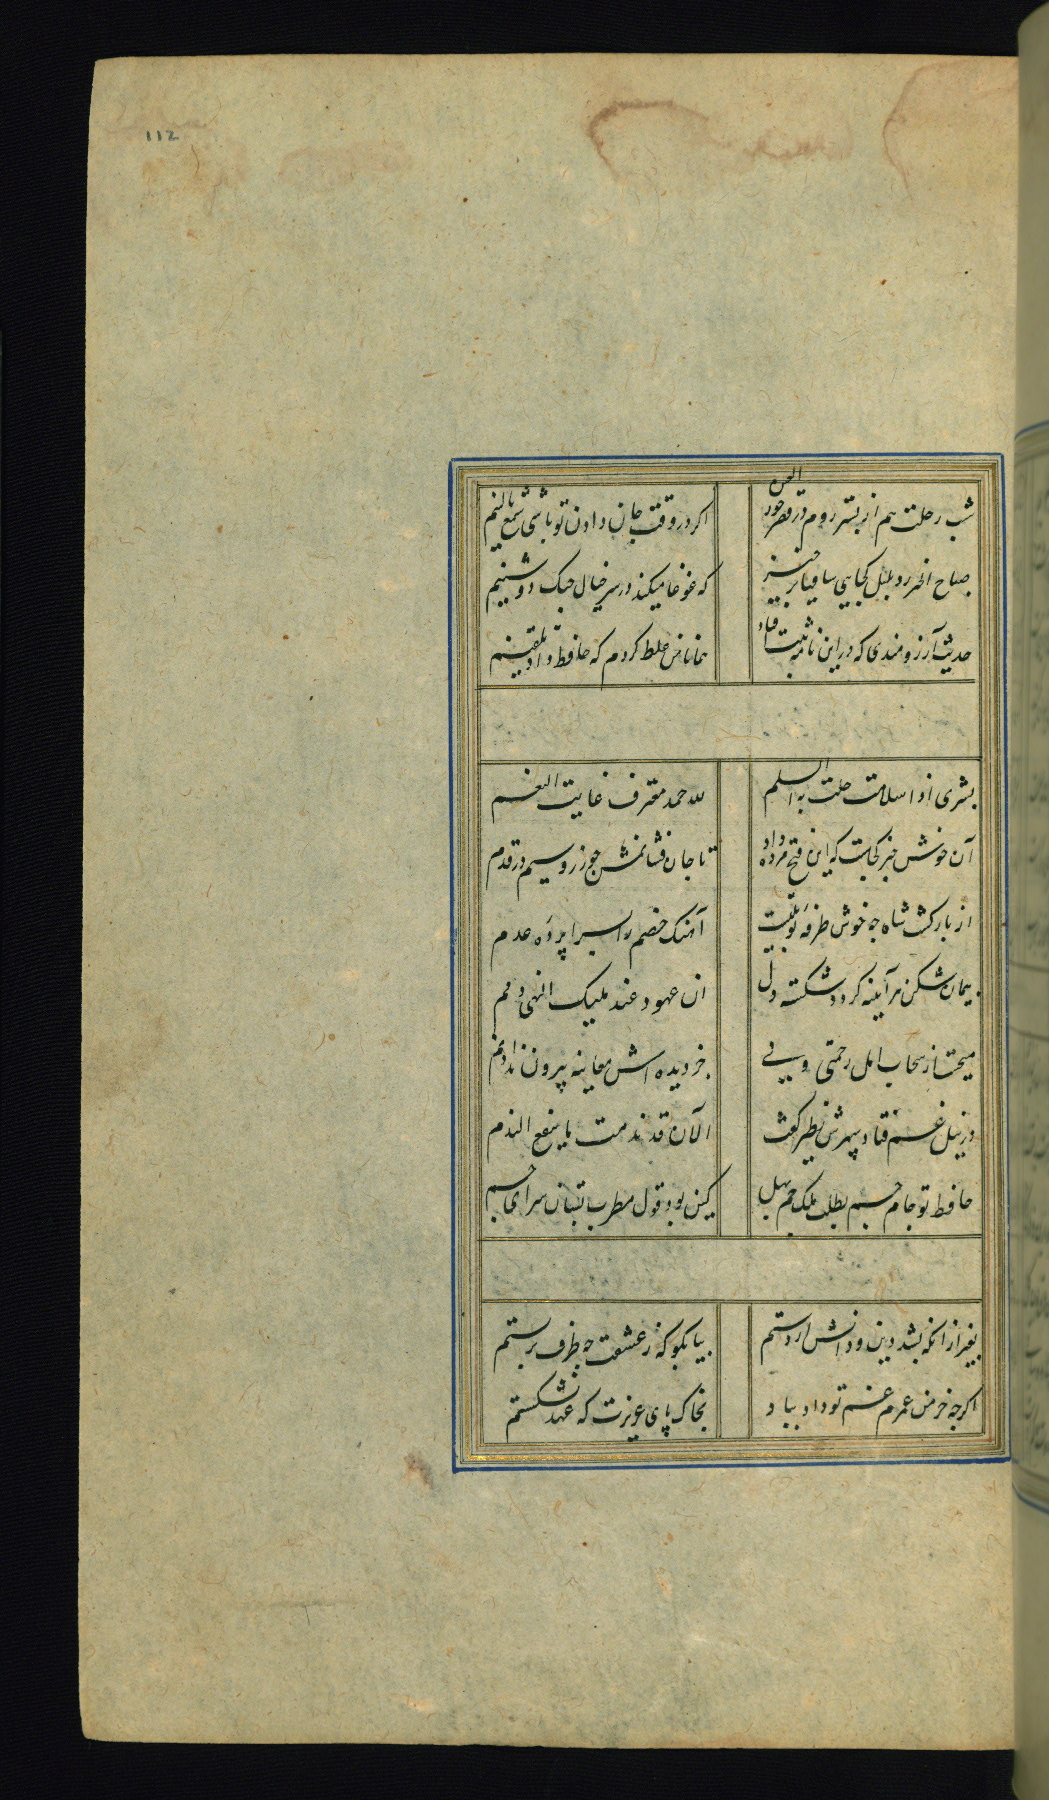 112
شب رحلت هم از بستر روم در قصر حور العین اکر در وقت جان دادن تو باشی شمع بالینم
صباح الخیر زد بلبل کجایی ساقیا برخیز که غوغا میکند در سر خیال جنک دوشینم
حدیث آرزومندی که در این نامه ثبت افتاد همانا من غلط کردم که حافظ داد تلقینم
بشری اذ السلامت حلت به السلم لله حمد معترف غایت النعم
آن خوش خبر کجاست که این فتح مژده داد تا جان فشانمش چو زر و سیم در قدم
از بازکشت شاه چه خوش طرفه نقش بست آهنک خصم را بسراپرده عدم
پیمان شکن هر آینه کردد شکسته دل ان عهود عند ملیک النهی ذمم
میجست از سحاب امل رحمتی ولی جز دیده اش معاینه بیرون نداد نم
در نیل غم فتاد سپهرش بطیر کفت الآن قد ندمت ما ینفع الندم
حافظ تو جام جم بطلب ملک جم بهل کین بود قول مطرب بستان سرای جم
بغیر از انکه بشد دین و دانش از دستم بیا بکو که ز عشقت چه طرف بربستم
اکرچه خرمن عمرم غم تو داد بباد بخاک پای عزیزت که عهد نشکستم